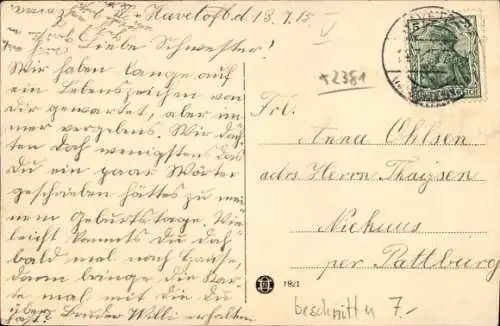 Havetoft d 13.7.15
Liebe Schwester!
Wir haben lange auf
ein Lebenszeichen von
dir gewartet, aber im
mer vergebens. Wir dach
ten doch wenigstens das
du ein paar Wörter
geschrieben hättes zu mei
nem Geburtstage. Vie
leicht kommts du doch
bald mal nach Hause,
dann bringe die Kar
te mal mit die du
Bruder Willi erhalten
hast.
x2381
Frl.
Anna Ohlsen
adrs Herrn Thaysen
Niehuus
per Pattburg
1821
beschnitten 7.-